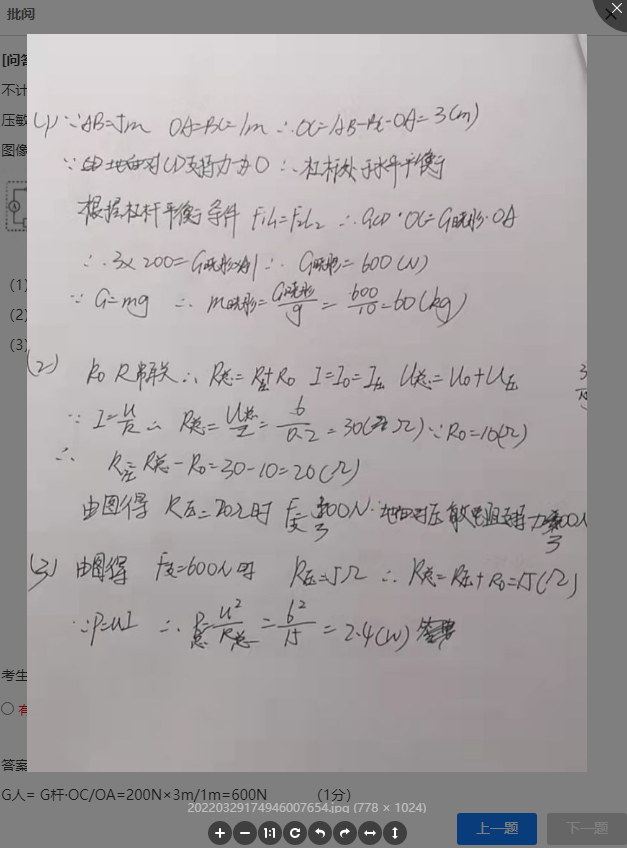 批阅
[问答
不计
压敏
图像
(1) ∵AB=5m OA=BC=1m ∴OC=AB-BC-OA=3(m)
∵地面对CD支持力为0 ∴杠杆处于水平平衡
根据杠杆平衡条件 F₁L₁=F₂L₂ ∴GCD·OC=G晓彤·OA
∴3×200=G晓彤×1 ∴G晓彤=600(N)
∵G=mg ∴m晓彤=G晓彤/g=600/10=60(kg)
(1)
(2)
(3)
(2) R₀ R串联∴R总=R压+R₀ I=I₀=I压 U总=U₀+U压
∵I=U/R ∴R总=U总/I=6/0.2=30(Ω) ∵R₀=10(Ω)
∴R压=R总-R₀=30-10=20(Ω)
由图得 R压=20Ω时 F支=300N
(3) 由图得 F支=600N时 R压=5Ω ∴R总=R压+R₀=15(Ω)
∵P=UI ∴P总=U²/R总=6²/15=2.4(W)
考生
有
答案
G人= G杆·OC/OA=200N×3m/1m=600N (1分)
20220329174946007654.jpg (778 × 1024)
1:1
上一题 下一题